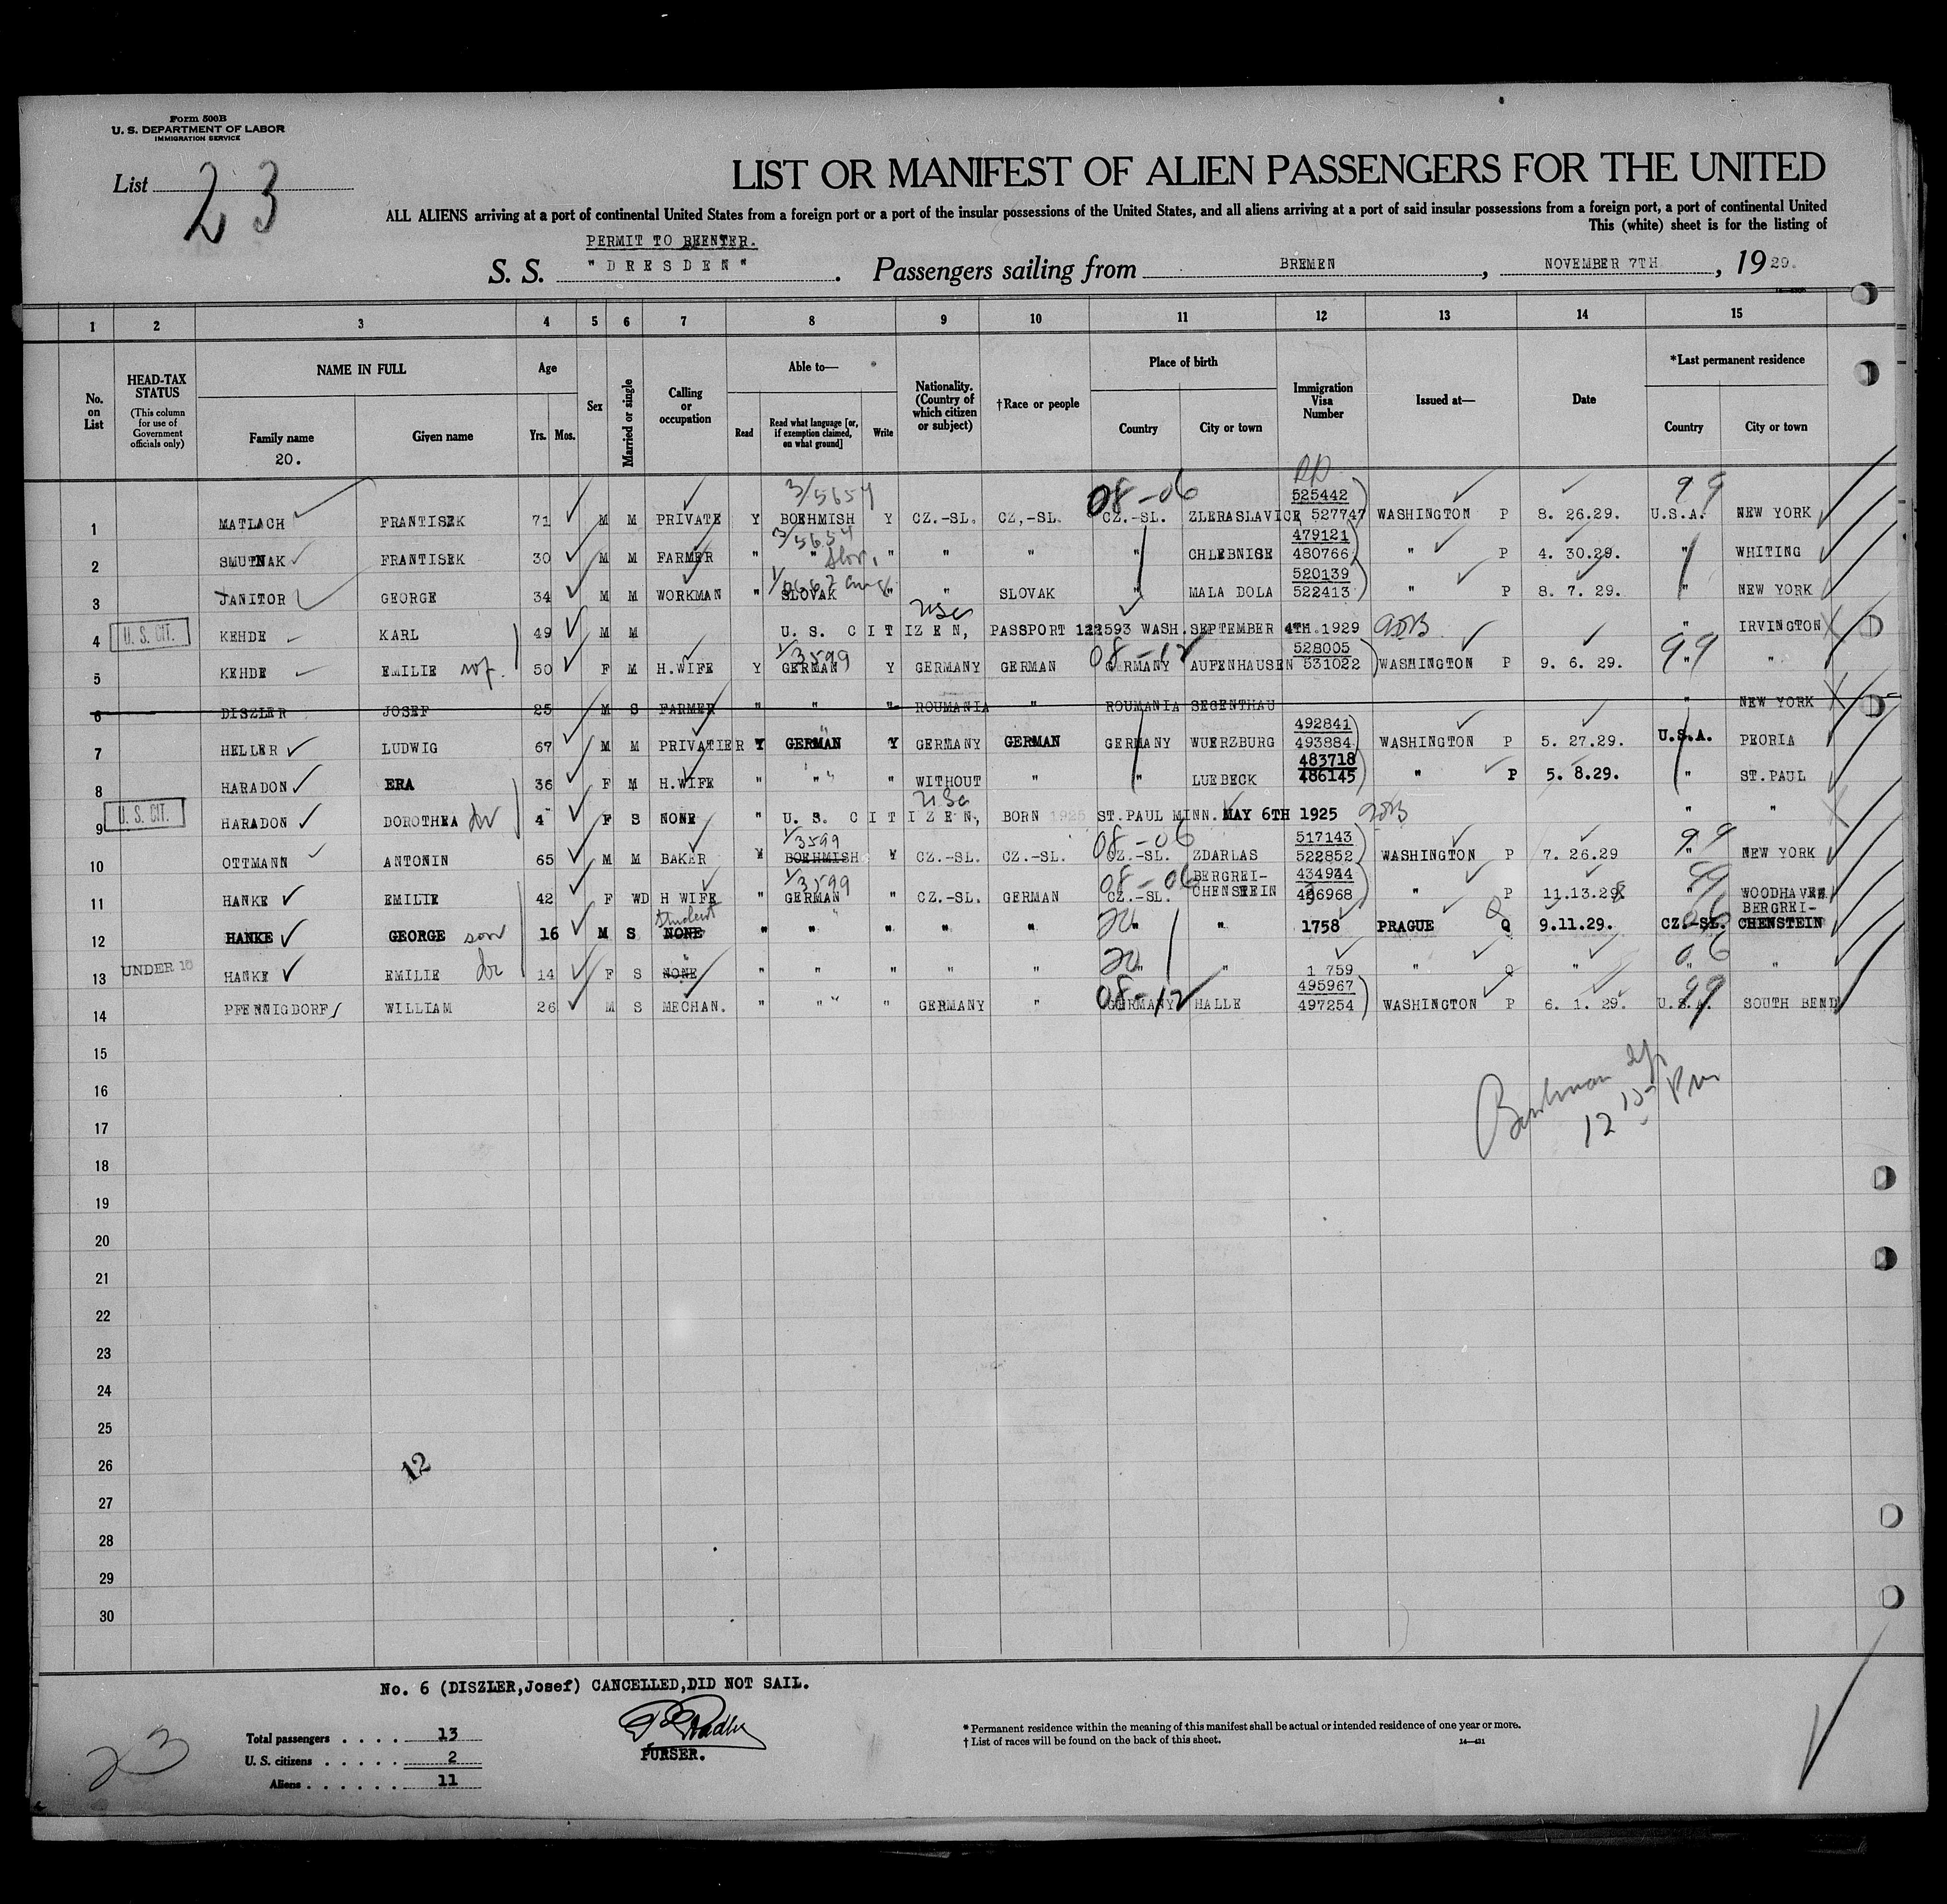 Form 500B
U. S. DEPARTMENT OF LABOR
IMMIGRATION SERVICE
List 23
LIST OR MANIFEST OF ALIEN PASSENGERS FOR THE UNITED
ALL ALIENS arriving at a port of continental United States from a foreign port or a port of the insular possessions of the United States, and all aliens arriving at a port of said insular possessions from a foreign port, a port of continental United
This (white) sheet is for the listing of
PERMIT TO REENTER.
S. S. "DRESDEN". Passengers sailing from BREMEN, NOVEMBER 7TH, 1929.
1 2 3 4 5 6 7 8 9 10 11 12 13 14 15
No. on List
HEAD-TAX STATUS (This column for use of Government officials only)
NAME IN FULL
Family name Given name
20.
Age
Yrs. Mos.
Sex
Married or single
Calling or occupation
Able to—
Read
Read what language [or, if exemption claimed, on what ground]
Write
Nationality. (Country of which citizen or subject)
†Race or people
Place of birth
Country City or town
Immigration Visa Number
Issued at—
Date
*Last permanent residence
Country City or town
3/5654 08-06 RP 525442 99
1 MATLACH FRANTISEK 71 M M PRIVATE Y BOEHMISH Y CZ.-SL. CZ,-SL. CZ.-SL. ZLERASLAVICE 527747 WASHINGTON P 8. 26.29. U.S.A. NEW YORK
3/5654 479121
2 SMUTNAK FRANTISEK 30 M M FARMER " " Slov. " " " " CHLEBNICE 480766 " P 4. 30.29. " WHITING
520139
3 JANITOR GEORGE 34 M M WORKMAN " SLOVAK " " SLOVAK " MALA DOLA 522413 " P 8. 7. 29. " NEW YORK
USC
4 U. S. CIT. KEHDE KARL 49 M M U. S. CITIZEN, PASSPORT 122593 WASH. SEPTEMBER 4TH.1929 " IRVINGTON
1/3599 08-12 528005 99
5 KEHDE EMILIE wf. 50 F M H.WIFE Y GERMAN Y GERMANY GERMAN GERMANY AUFENHAUSEN 531022 WASHINGTON P 9. 6. 29. " "
6 DISZLER JOSEF 25 M S FARMER " " " ROUMANIA " ROUMANIA SEGENTHAU " NEW YORK
492841
7 HELLER LUDWIG 67 M M PRIVATIER Y GERMAN Y GERMANY GERMAN GERMANY WUERZBURG 493884 WASHINGTON P 5. 27.29. U.S.A. PEORIA
483718
8 HARADON ERA 36 F M H.WIFE " " " WITHOUT " " LUEBECK 486145 " P 5. 8.29. " ST.PAUL
USC
9 U. S. CIT. HARADON DOROTHEA 4 F S NONE " U. S. CITIZEN, BORN 1925 ST.PAUL MINN. MAY 6TH 1925 " "
1/3599 08-06 517143 99
10 OTTMANN ANTONIN 65 M M BAKER Y BOEHMISH Y CZ.-SL. CZ.-SL. CZ.-SL. ZDARLAS 522852 WASHINGTON P 7. 26.29 " NEW YORK
1/3599 08-06 434944 99
11 HANKE EMILIE 42 F WD H WIFE " GERMAN " CZ.-SL. GERMAN CZ.-SL. BERGREI-CHENSTEIN 496968 " P 11.13.28 " WOODHAVEN
Student
12 HANKE GEORGE son 16 M S NONE " " " " " 20 " " 1758 PRAGUE Q 9.11.29. CZ.-SL. BERGREI-CHENSTEIN
13 UNDER 16 HANKE EMILIE 14 F S NONE " " " " " 20 " " 1 759 " Q " 06 " "
08-12 495967 99
14 PFENNIGDORF WILLIAM 26 M S MECHAN. " " " GERMANY " GERMANY HALLE 497254 WASHINGTON P 6. 1. 29. U.S.A. SOUTH BEND
15
16
12 15 PM
17
18
19
20
21
22
23
24
25
26
12
27
28
29
30
No. 6 (DISZLER,Josef) CANCELLED,DID NOT SAIL.
23
Total passengers . . . . 13
U. S. citizens . . . . . 2
Aliens . . . . . . 11
PURSER.
* Permanent residence within the meaning of this manifest shall be actual or intended residence of one year or more.
† List of races will be found on the back of this sheet.
14—431